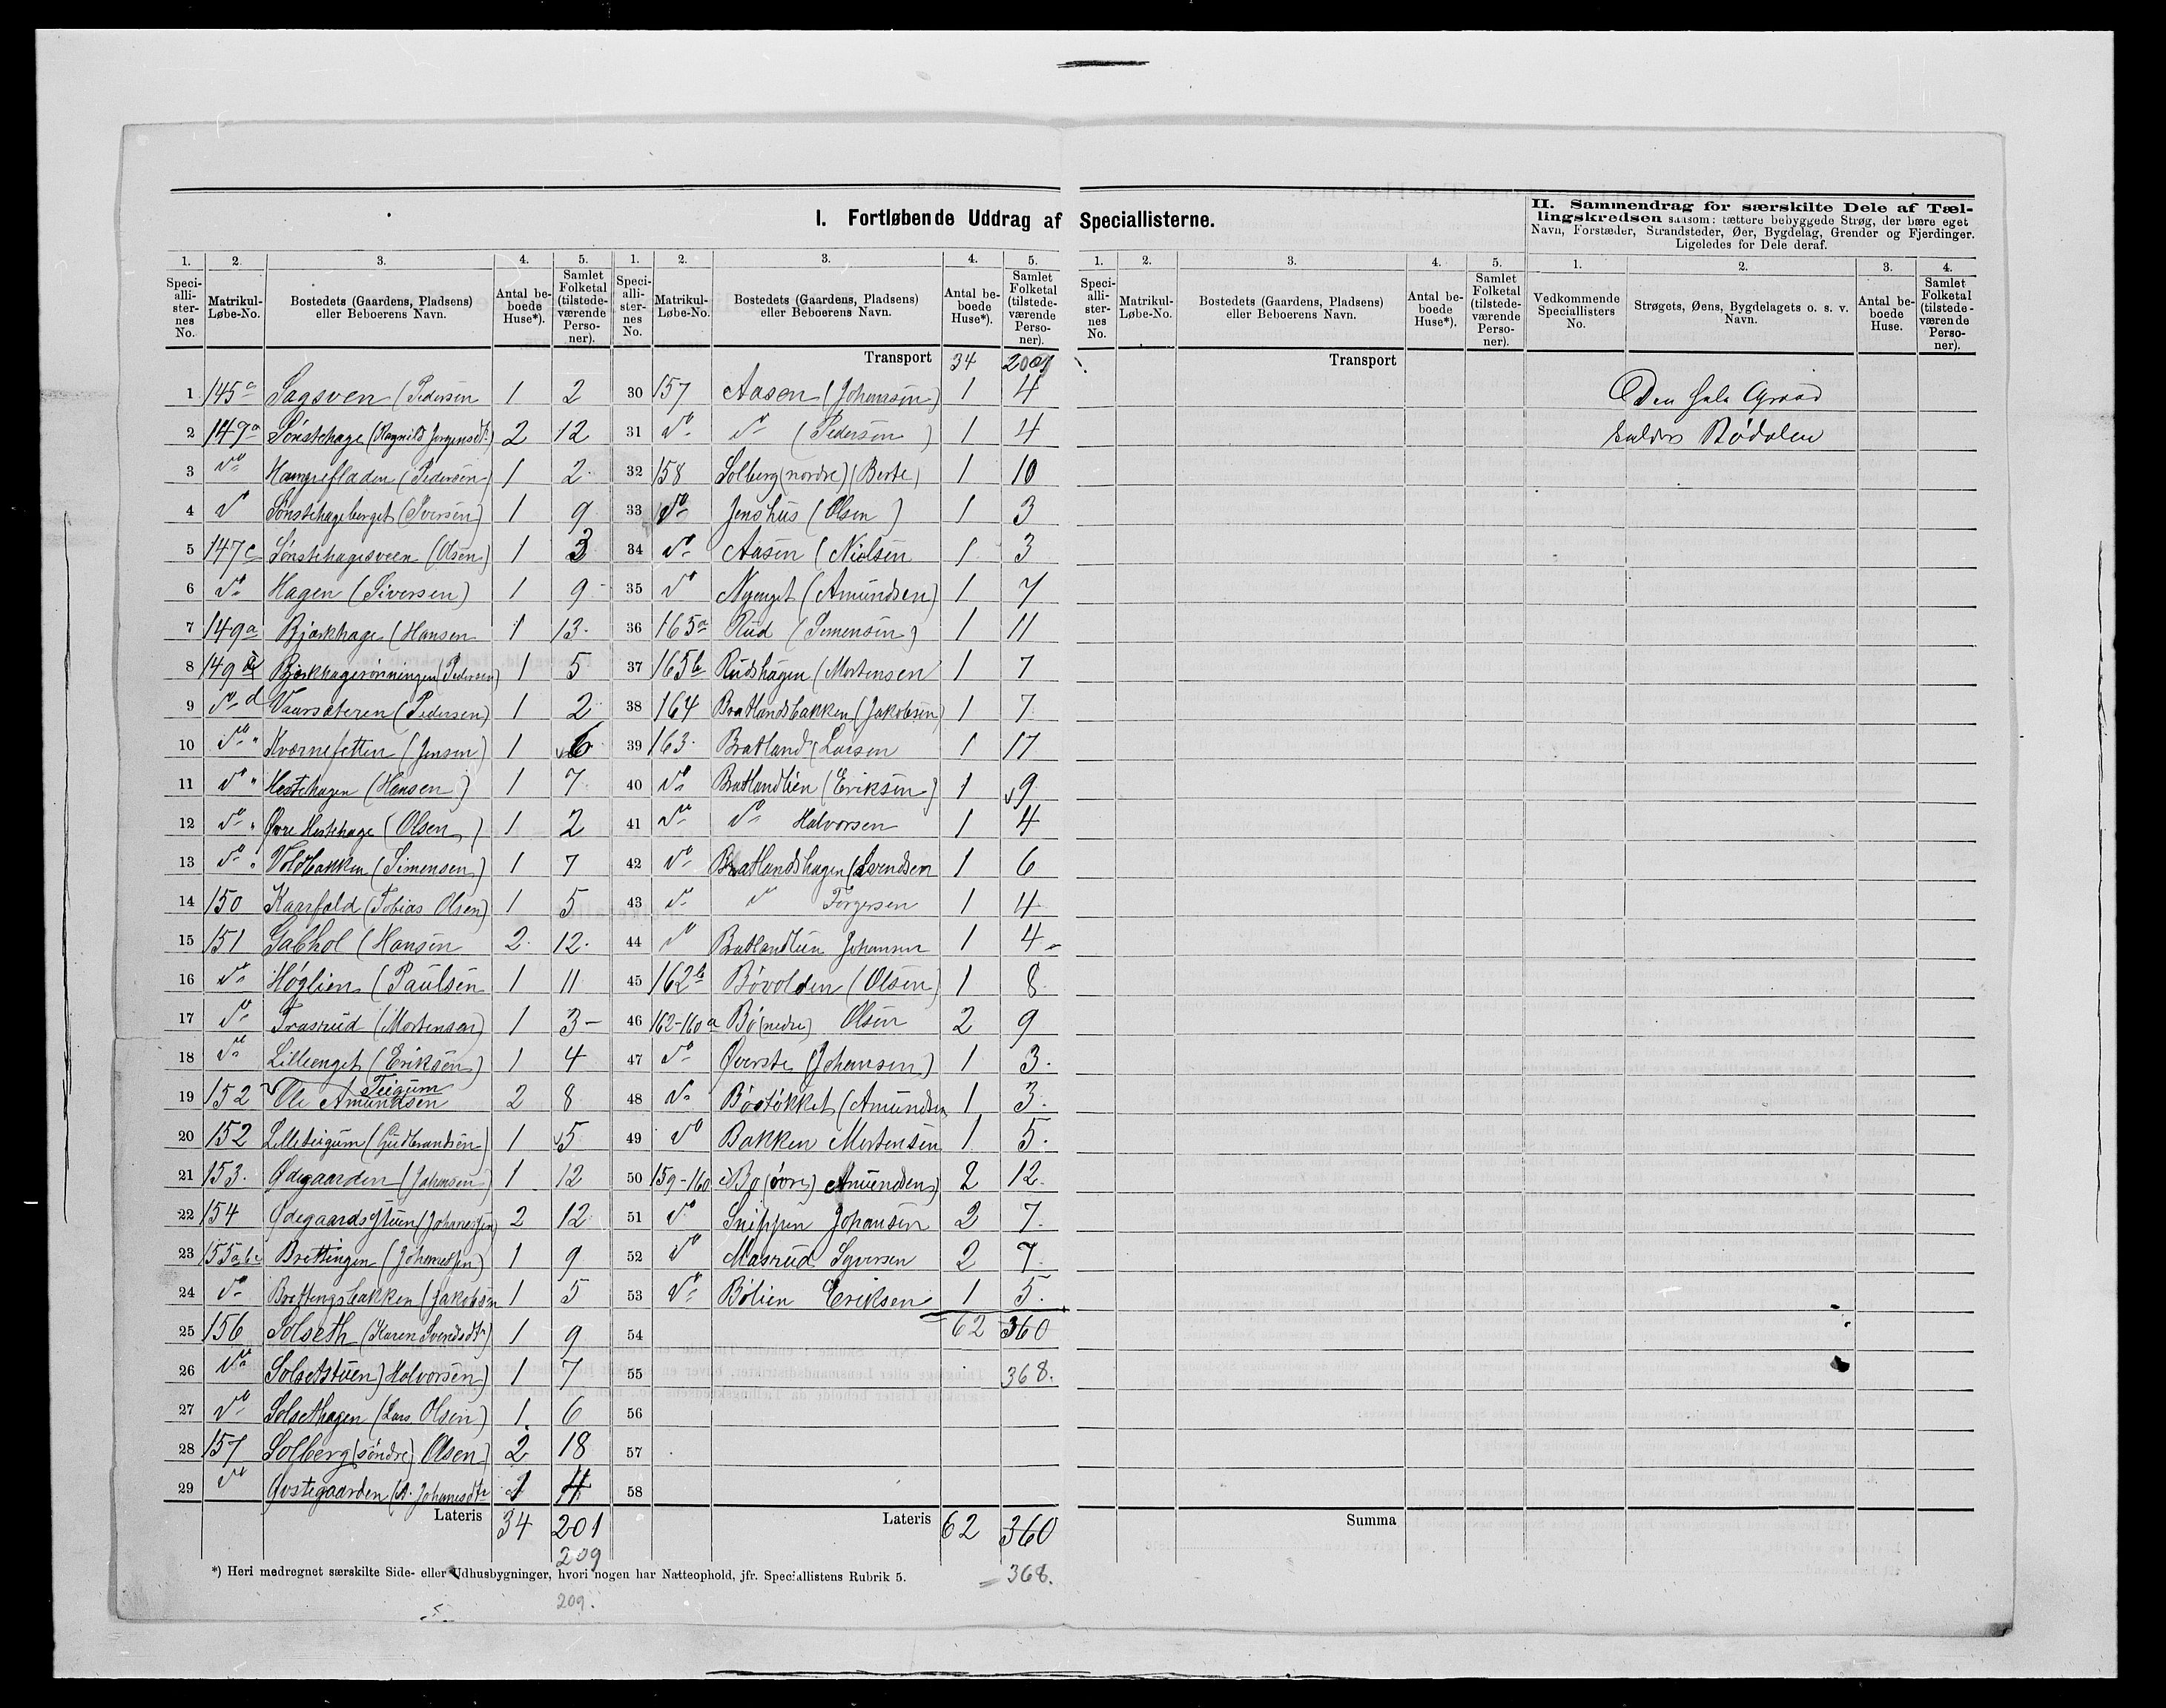 I. Fortløbende Uddrag af Speciallisterne.
II. Sammendrag for særskilte Dele af Tæl-
lingskredsen saasom: tættere bebyggede Strøg, der bære eget
Navn, Forstæder, Strandsteder, Øer, Bygdelag, Grender og Fjerdinger.
Ligeledes for Dele deraf.
1. 2. 3. 4. 5. 1. 2. 3. 4. 5. 1. 2. 3. 4. 5. 1. 2. 3. 4.
Speci-alli-ster-nes No. Matrikul-Løbe-No. Bostedets (Gaardens, Pladsens) eller Beboerens Navn. Antal be-boede Huse*). Samlet Folketal (tilstede-værende Perso-ner).
Speci-alli-ster-nes No. Matrikul-Løbe-No. Bostedets (Gaardens, Pladsens) eller Beboerens Navn. Antal be-boede Huse*). Samlet Folketal (tilstede-værende Perso-ner).
Speci-alli-ster-nes No. Matrikul-Løbe-No. Bostedets (Gaardens, Pladsens) eller Beboerens Navn. Antal be-boede Huse*). Samlet Folketal (tilstede-værende Perso-ner).
Vedkommende Speciallisters No. Strøgets, Øens, Bygdelagets o. s. v. Navn. Antal be-boede Huse. Samlet Folketal (tilstede-værende Perso-ner).
1 145a Sagsveen (Pedersen 1 2
2 149a Sönstehage (Ragnild Jörgensdtr 2 12
3 do (Pedersen) 1 2
4 do Sönstehageberget (Iversen) 1 9
5 147c Sönstehagesveen (Olsen) 1 3
6 do Hagen (Siversen) 1 9
7 149a Bjørkhage (Hansen 1 13
8 149 Bjørkhagerönningen (Pedersen) 1 5
9 do d Vaarsæteren (Pedersen) 1 2
10 do " (Jensen) 1 6
11 do " Hestehagen (Hansen) 1 7
12 do " Øvre Hestehage (Olsen) 1 2
13 do " Voldbakken (Simensen) 1 7
14 150 Kaarfald (Tobias Olsen) 1 5
15 151 (Hansen 2 12
16 do Höglien (Paulsen 1 11
17 do Trasrud (Mortensen) 1 3
18 do Lilleenget (Eriksen) 1 4
19 152 Teigum Ole Amundsen 2 8
20 152 Lilleteigum (Gudbrandsen) 1 5
21 153 Ødegaarden (Johansen) 1 12
22 154 Ødegaardsstuen (Johannesen) 2 12
23 155abc Brettingen (Johannesen) 1 9
24 do Brettingsbakken (Jakobsen 1 5
25 156 Solseth (Karen Svendsdtr) 1 9
26 do Solsetstuen) Halvorsen) 1 7
27 do Solsethagen (Lars Olsen) 1 6
28 157 Solberg (söndre) Olsen) 2 18
29 do Østegaarden (A. Johanesdtr 1 4
Lateris 34 201
209
209.
Transport 34 209
30 157 Aasen (Johansen) 1 4
31 do do (Pedersen) 1 4
32 158 Solberg (nordre) (Berte) 1 10
33 do Jenshus (Olsen) 1 3
34 do Aasen (Nielsen 1 3
35 do Nyenget (Amundsen) 1 7
36 165a Rud (Simensen) 1 11
37 165b Rudshagen (Mortensen 1 7
38 164 Bratlandsbakken (Jakobsen) 1 7
39 163 Bratland (Larsen 1 17
40 do Bratlandlien (Eriksen) 1 9
41 do do Halvorsen 1 4
42 do Bratlandshagen (Svendsen 1 6
43 do do Torgersen 1 4
44 do Bratlandlien Johansen 1 4
45 162b Bövolden (Olsen) 1 8
46 162-160a Bö (nedre) Olsen 2 9
47 do Øverste (Johansen) 1 3
48 do Böstökket (Amundsen 1 3
49 do Bakken Mortensen 1 5
50 159-160 Bø (övre) Amundsen) 2 12
51 do Snippen Johansen 2 7
52 do Masrud Syversen 2 7
53 do Bölien Eriksen 1 5
54 62 360
55 368.
56
57
58
Lateris 62 360
368.
Transport
Summa
Den hele
kaldes Bödalen
*) Heri medregnet særskilte Side- eller Udhusbygninger, hvori nogen har Natteophold, jfr. Speciallistens Rubrik 5.